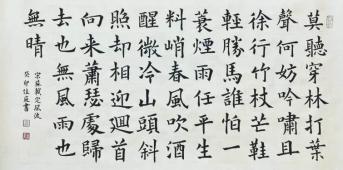 莫聽穿林打葉
聲何妨吟嘯且
徐行竹杖芒鞋
輕勝馬誰怕一
蓑煙雨任平生
料峭春風吹酒
醒微冷山頭斜
照却相迎迴首
向来蕭瑟處歸
去也無風雨也
無晴
宋蘇軾定風波
癸卯